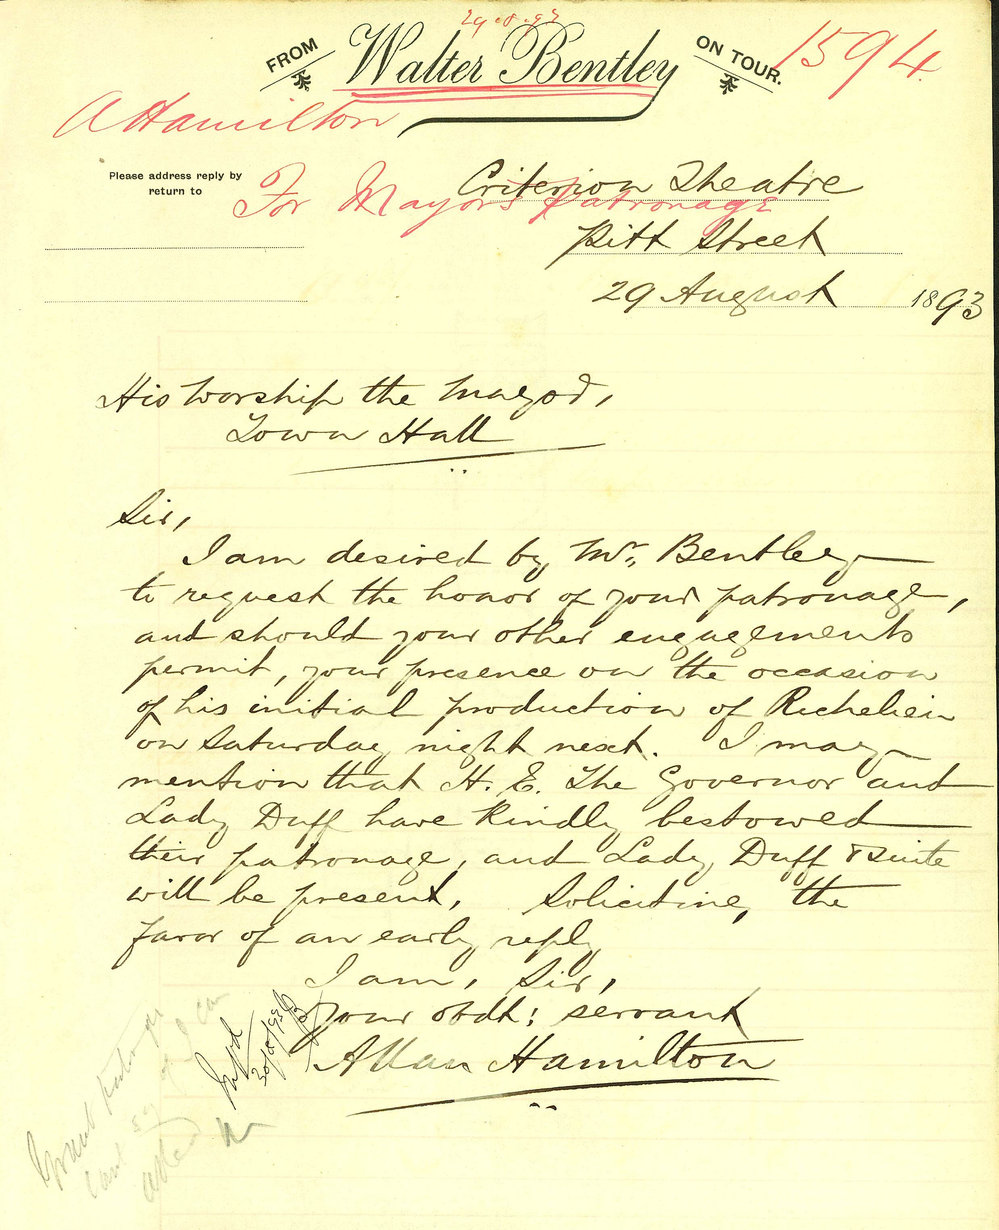 29.8.93
FROM Walter Bentley ON TOUR.
1594
A Hamilton
Please address reply by
return to
For Mayor's Patronage
Criterion Theatre
Pitt Street
29 August 1893
His Worship the Mayor,
Town Hall
Sir,
I am desired by Mr. Bentley
to request the honor of your patronage,
and should your other engagements
permit, your presence on the occasion
of his initial production of Richelieu
on Saturday night next. I may
mention that H. E. The Governor and
Lady Duff have kindly bestowed
their patronage, and Lady Duff & suite
will be present. Soliciting the
favor of an early reply
I am, Sir,
Your obdt: servant
Allan Hamilton
30/8/93
Grant patronage